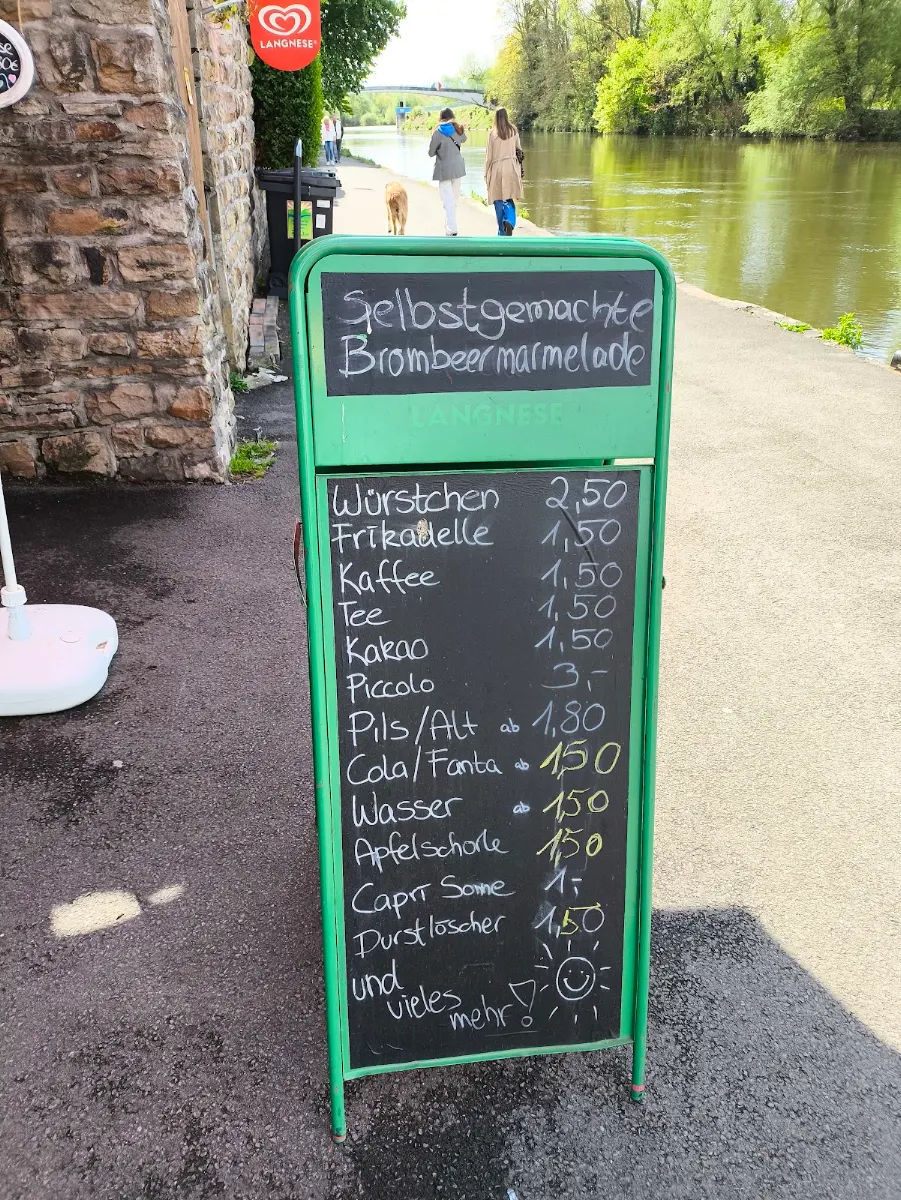 LANGNESE
Selbstgemachte
Brombeermarmelade
LANGNESE
Würstchen 2,50
Frikadelle 1,50
Kaffee 1,50
Tee 1,50
Kakao 1,50
Piccolo 3,-
Pils/Alt ab 1,80
Cola/Fanta ab 1,50
Wasser ab 1,50
Apfelschorle 1,50
Capri Sonne 1,-
Durstlöscher 1,50
und
vieles
mehr!